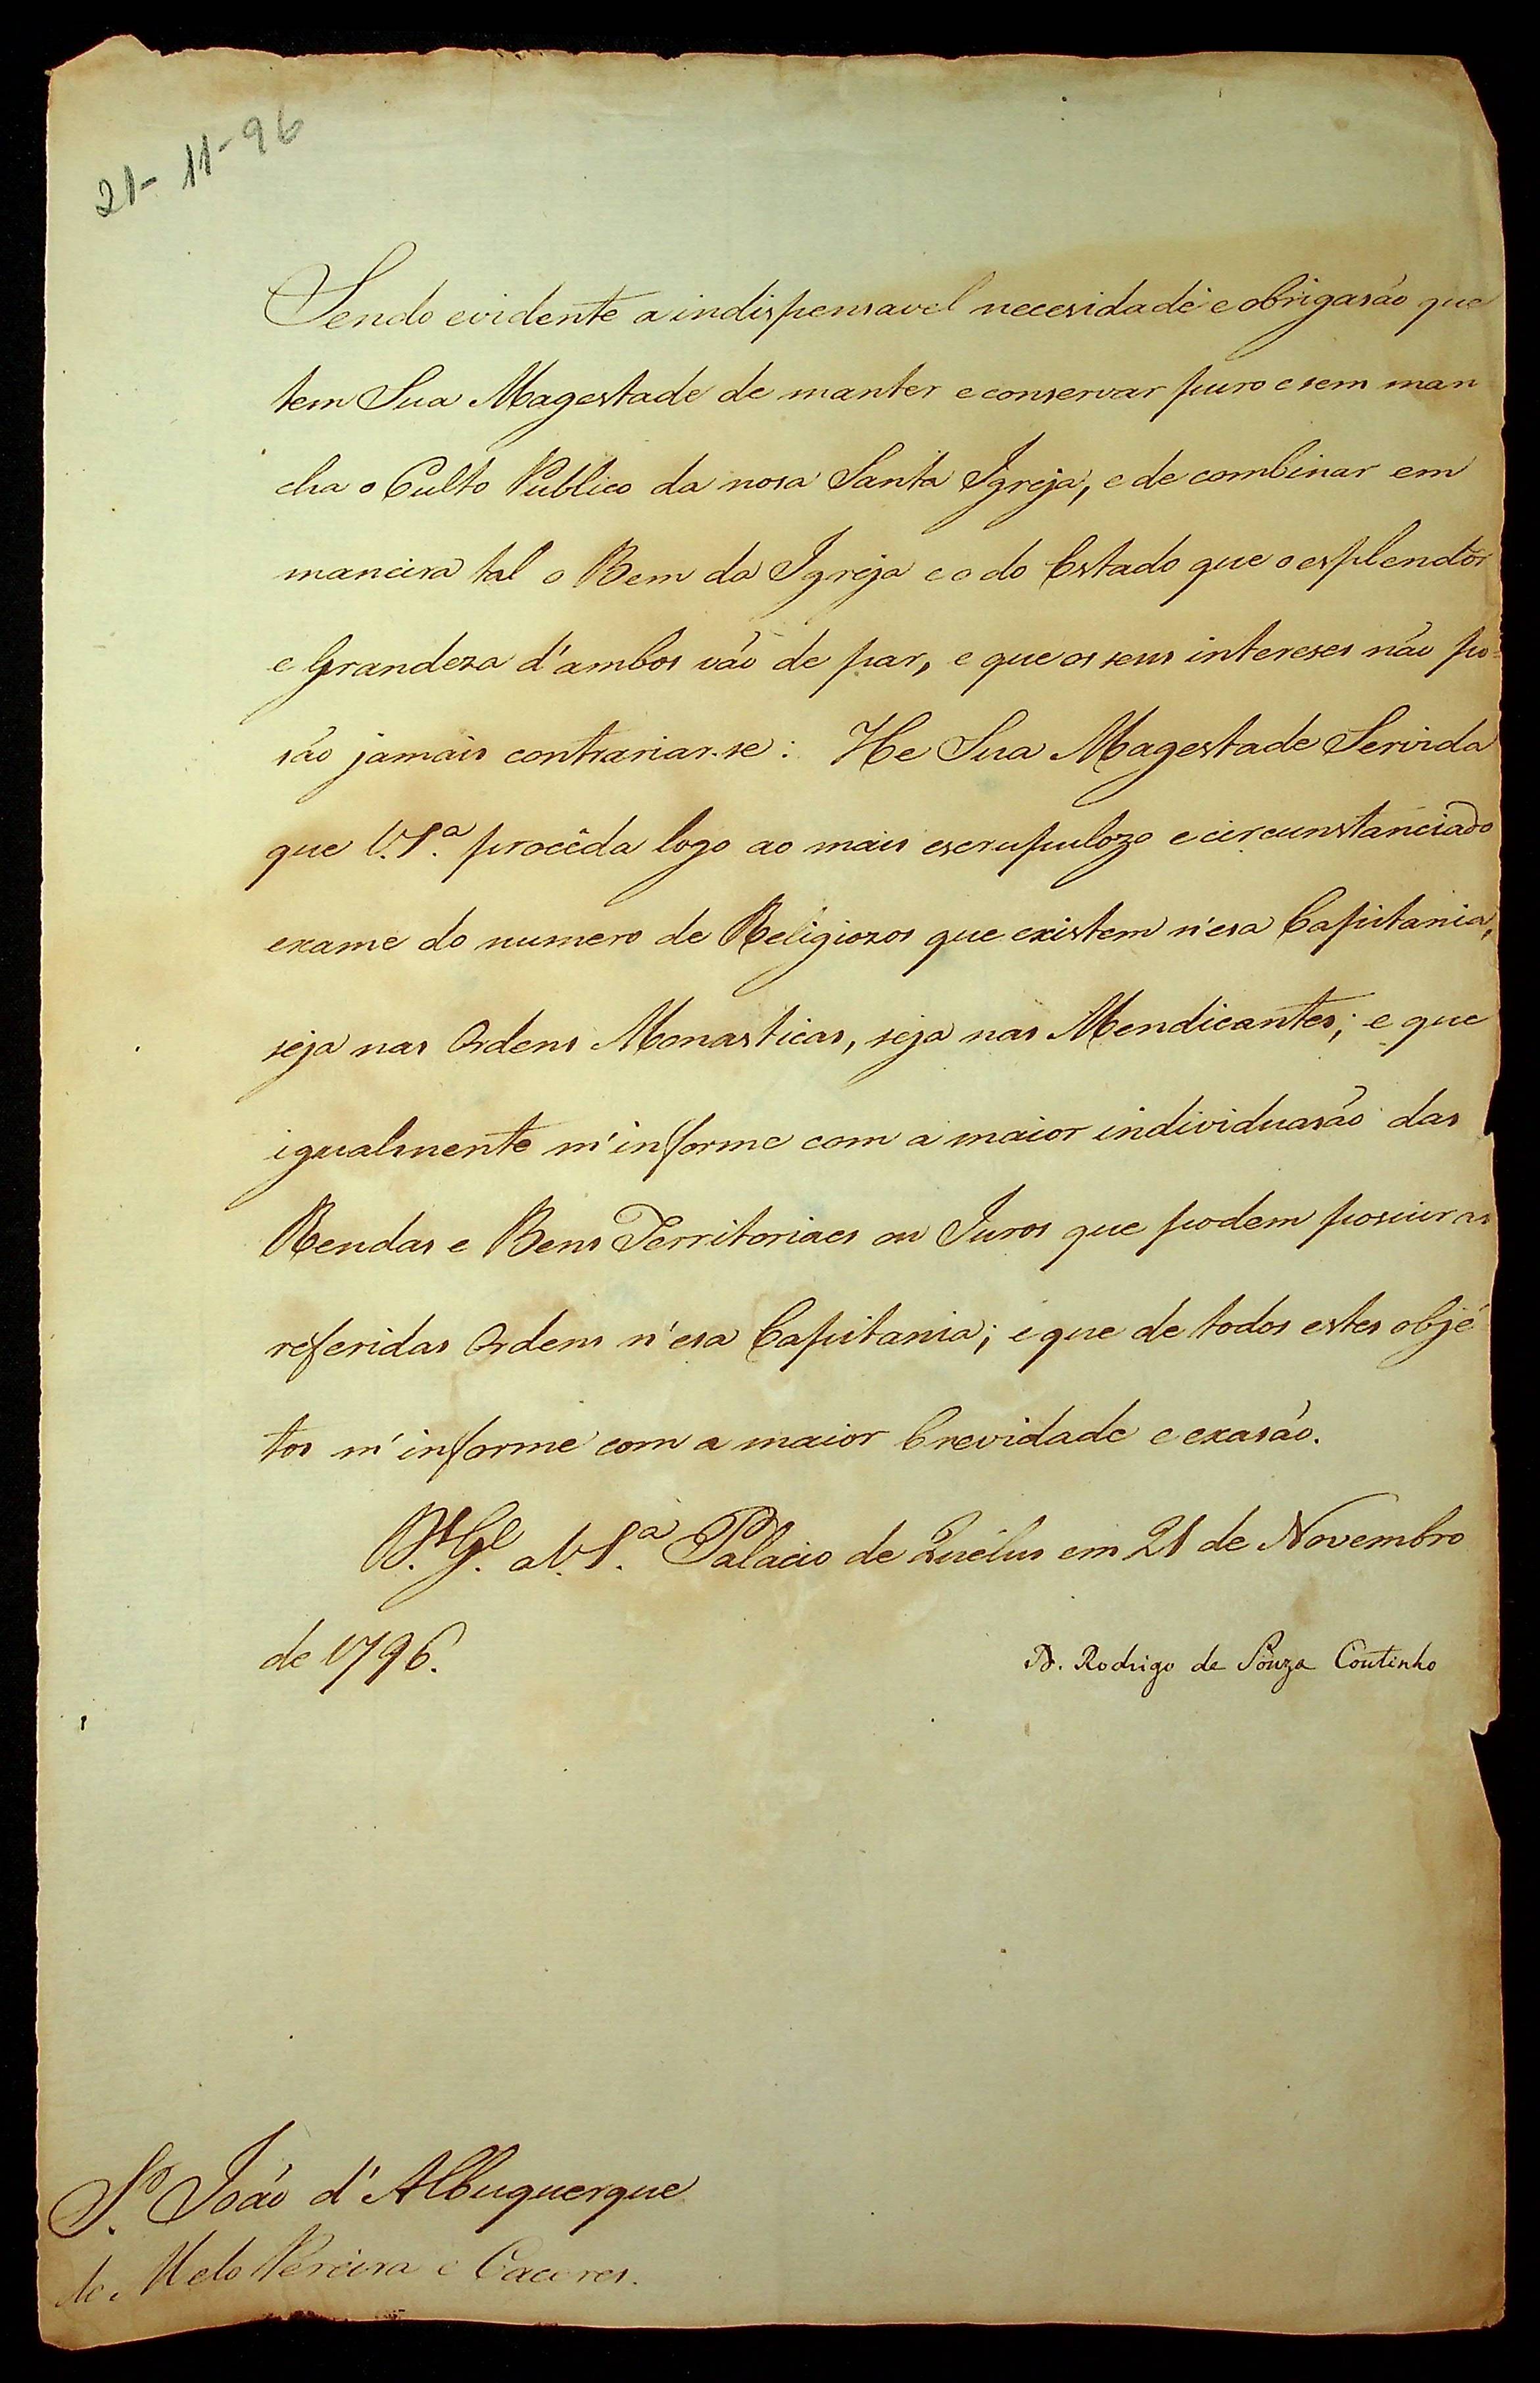 21-11-96
Sendo evidente a indispensavel necesidade e obrigasão que
tem Sua Magestade de manter e conservar puro e sem man
cha o Culto Publico da nosa Santa Igreja, e de combinar em
maneira tal o Bem da Igreja e o do Estado que o esplendor
e Grandeza d'ambos vão de par, e que os seus intereses não po
são jamais contrariar-se: He Sua Magestade Servida
que V.S.ª procêda logo ao mais escrupulozo e circunstanciado
exame do numero de Religiozos que existem n'esa Capitania,
seja nas Ordens Monasticas, seja nas Mendicantes; e que
igualmente m'informe com a maior individuasão das
Rendas e Bens Territoriaes ou Juros que podem posuir as
referidas Ordens n'esa Capitania; e que de todos estes objé
tos m'informe com a maior brevidade e exasão.
D.s G.e a V.S.ª Palacio de Quélus em 21 de Novembro
de 1796.
D. Rodrigo de Souza Coutinho
S.r João d'Albuquerque
de Melo Pereira e Caceres.